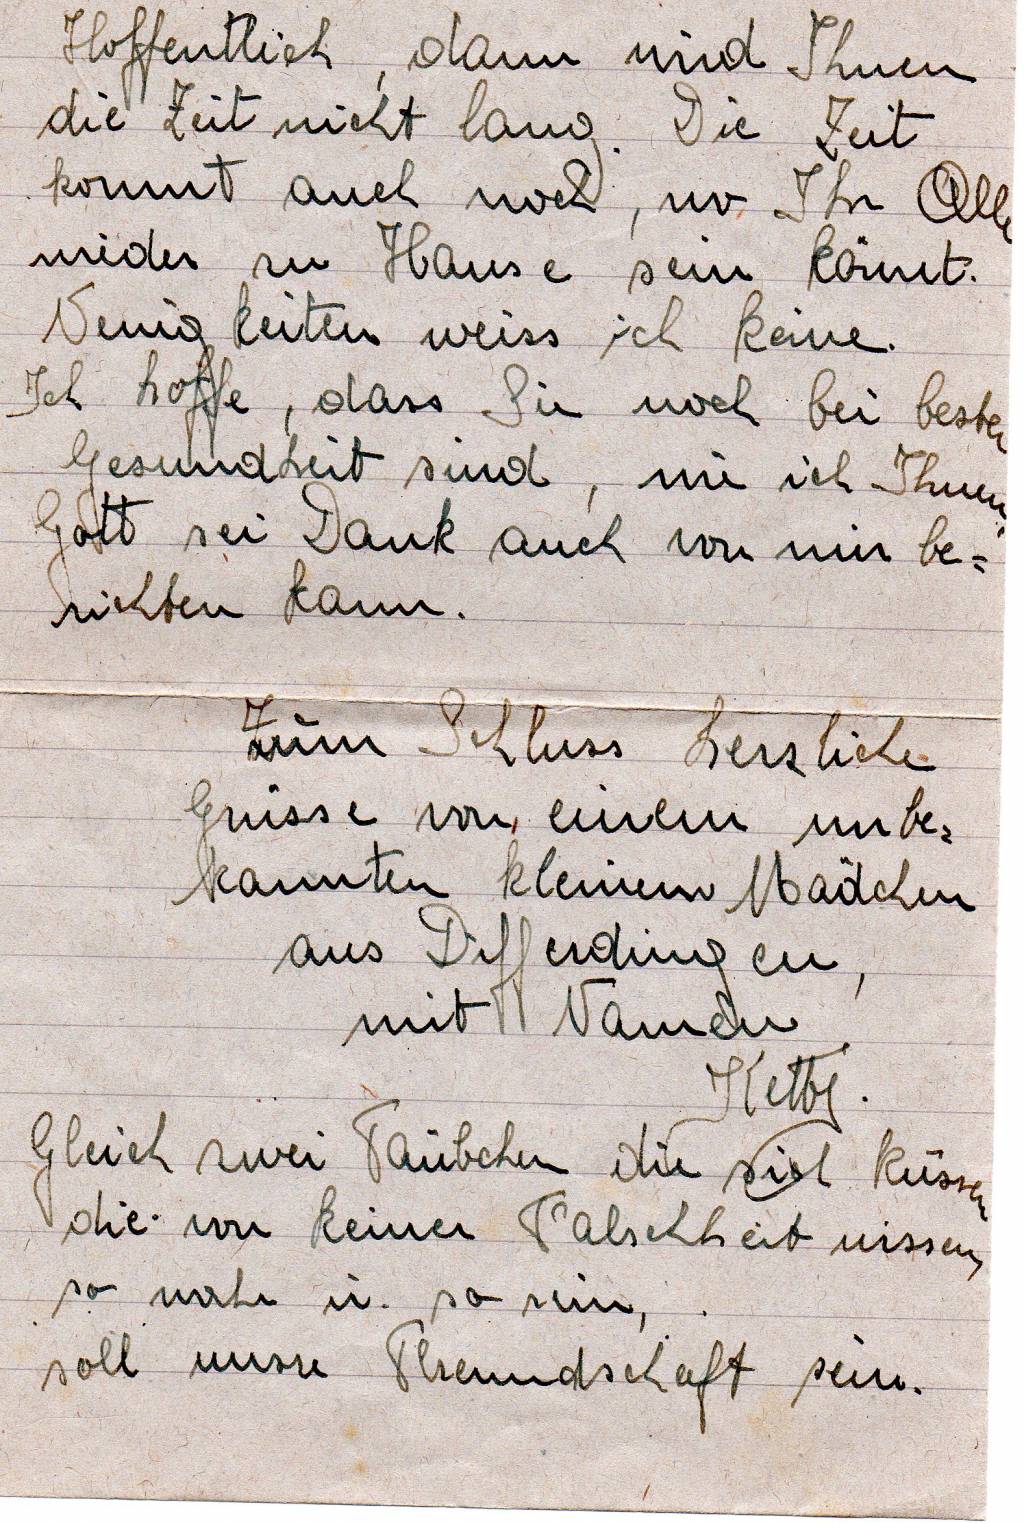 Hoffentlich, dann wird Ihnen
die Zeit nicht lang. Die Zeit
kommt auch noch, wo Ihr Alle
wieder zu Hause sein könnt.
Neuigkeiten weiss ich keine.
Ich hoffe, dass Sie noch bei bester
Gesundheit sind, wie ich Ihnen,
Gott sei Dank auch von mir be=
richten kann.
Zum Schluss herzliche
Grüsse von einem unbe=
kannten kleinem Mädchen
aus Differdingen,
mit Namen
Ketty.
Gleich zwei Taübchen die sich küssen
die von keiner Falschheit wissen,
so wahr u. so rein,
soll unsre Freundschaft sein.